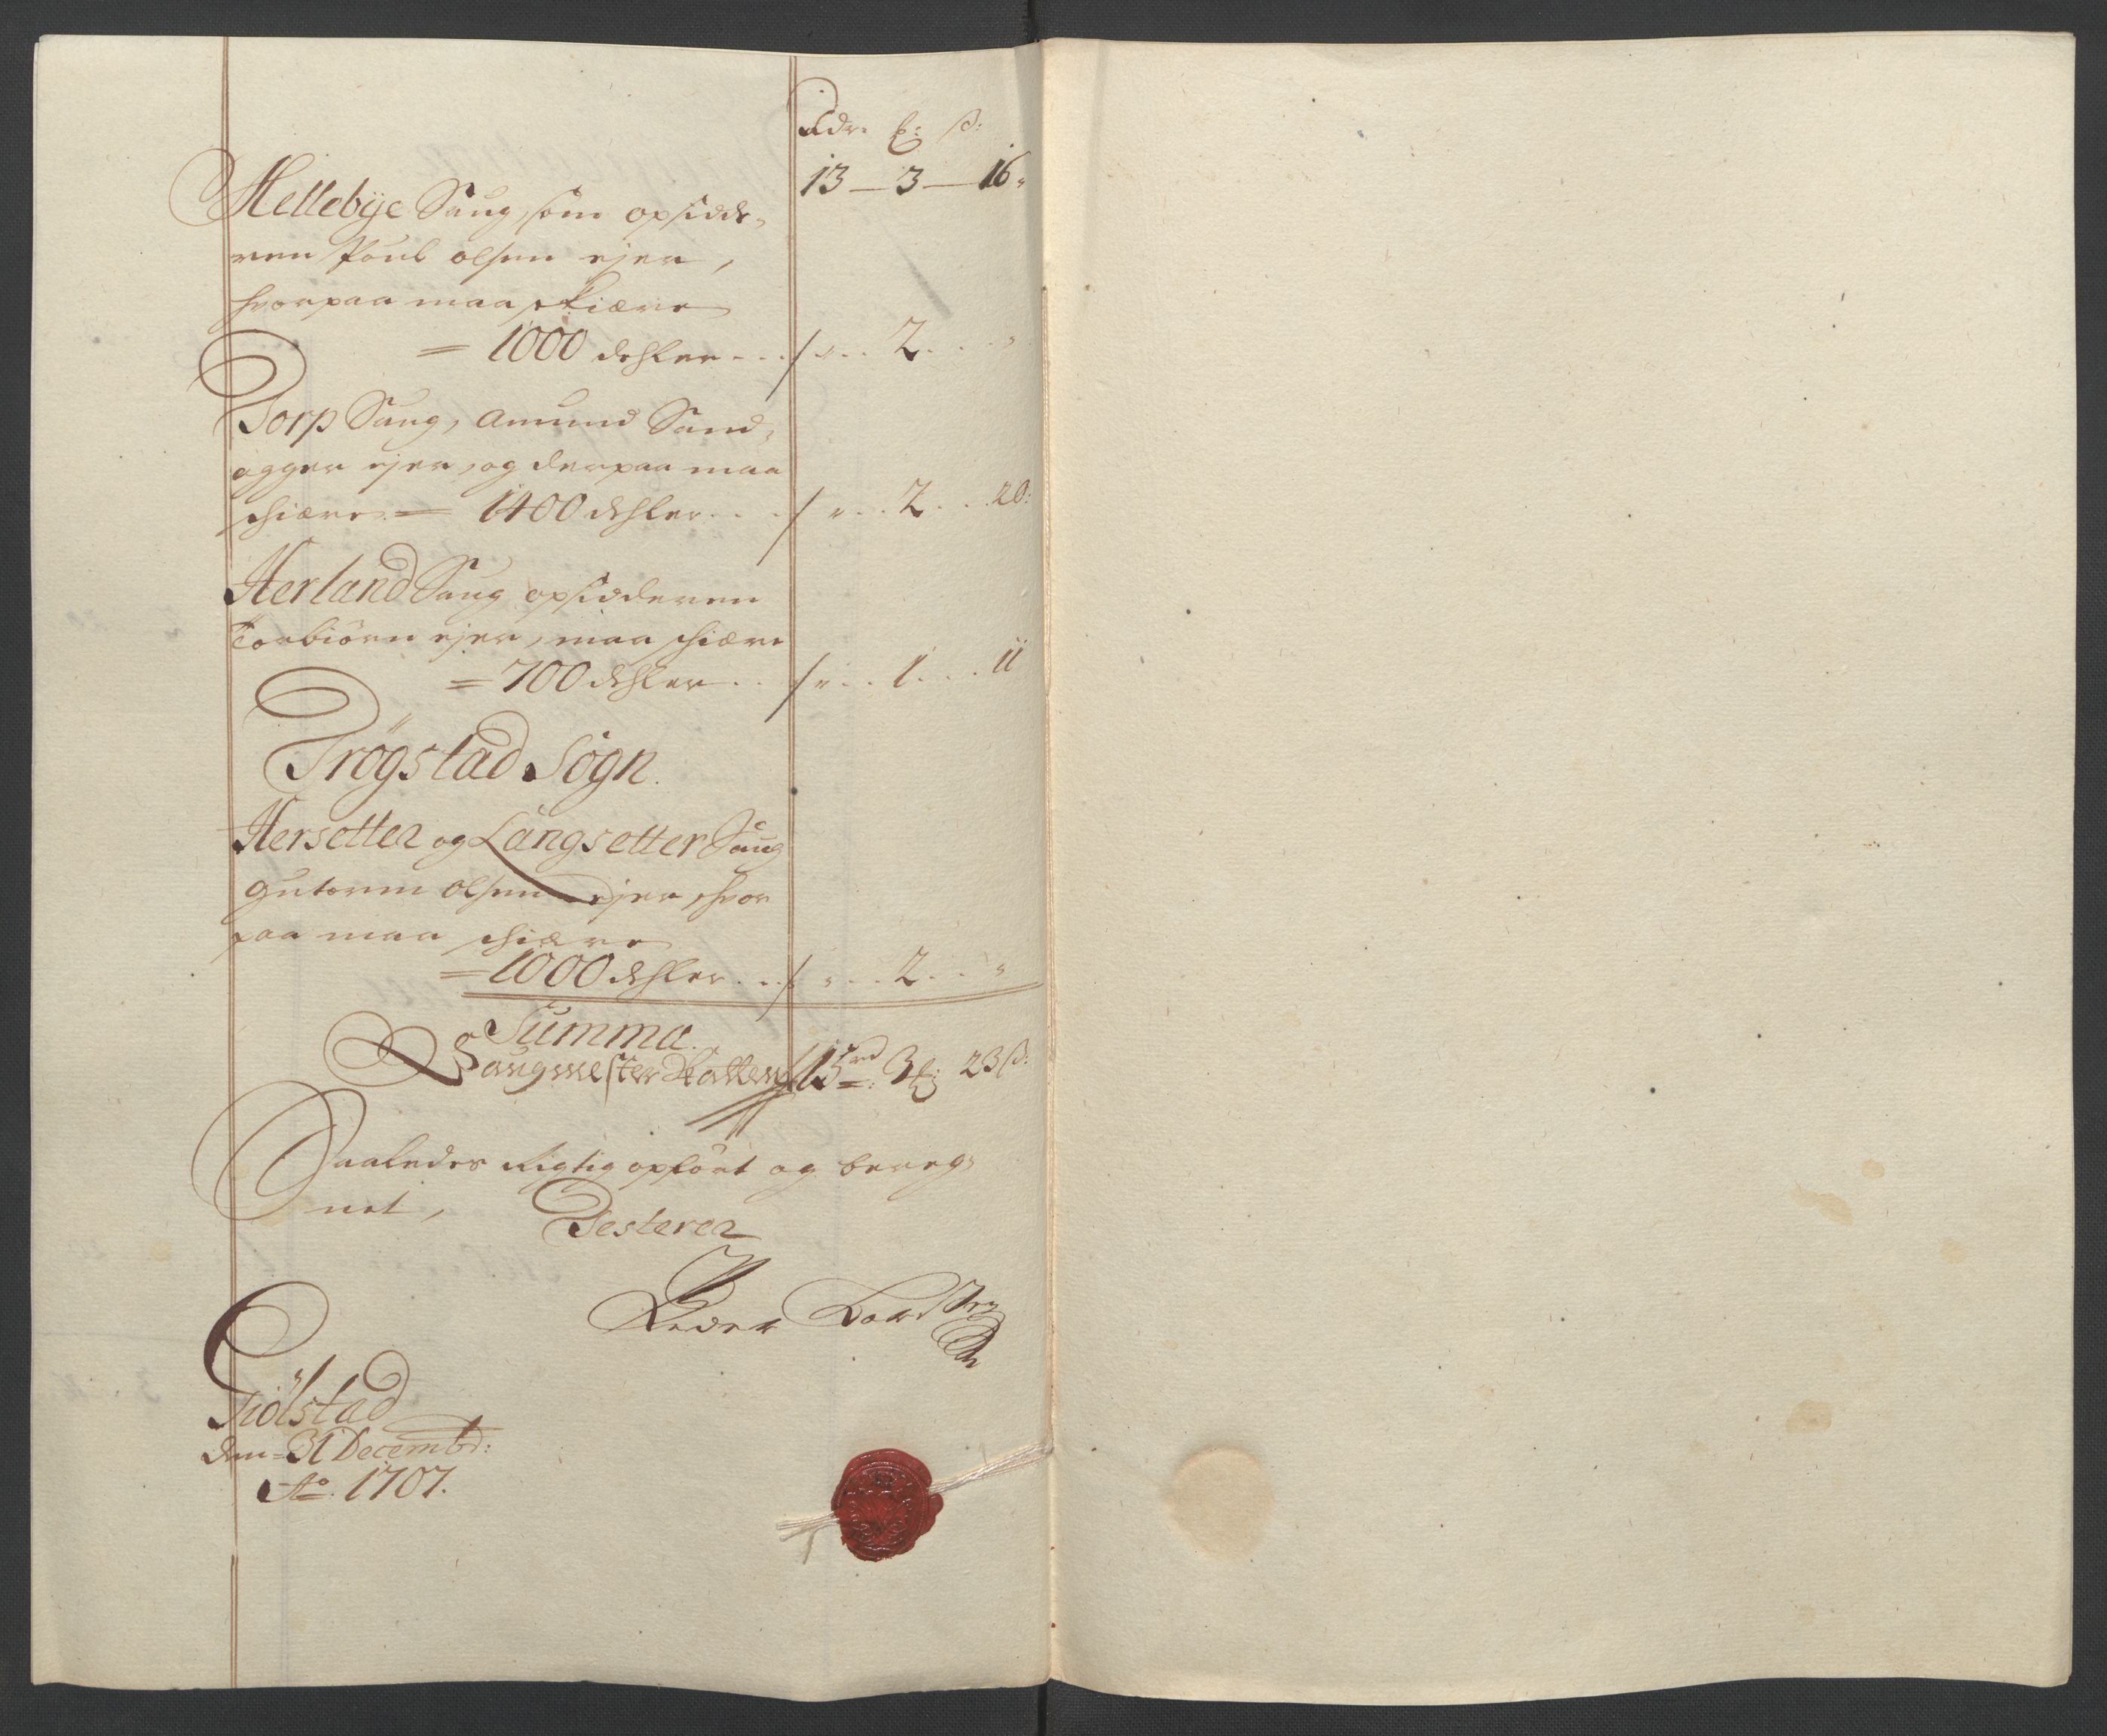 Rdr. ß:
13 — 3 — 16
Hellebye Saug, som opsidde-
ren Poul olsen ejer,
hvorpaa maa skiære
= 1000 dehler . . . / „ . . 2 . . . „
Torp Saug, Amund Sand-
agger ejer, og derpaa maa
schiære = 1400 dehler . . . / „ . . 2 . . . 20:
Herland Saug opsidderen
Torbiörn ejer, maa schiære
= 700 dehler . . / „ . . 1 . . . 11
Trögstad Sogn.
Hersetter og Langsetter Saug
Gutorm Olsen ejer, hvor
paa maa schiære
= 1000 dehler . . . / „ . . 2 . . . „
Summa.
Saugmester Skatten 15 rd: 3 23 ß:
Saaledes Rigtig opfört og bereg-
net, Testerer
Peder
Giölstad
den 31 Decembr:
Ao. 1707.